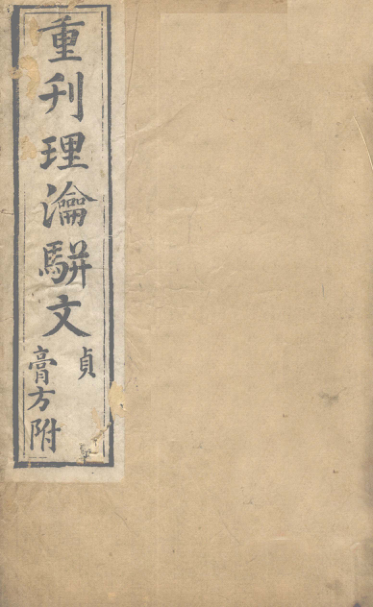 重刊理瀹駢文
貞
膏方附